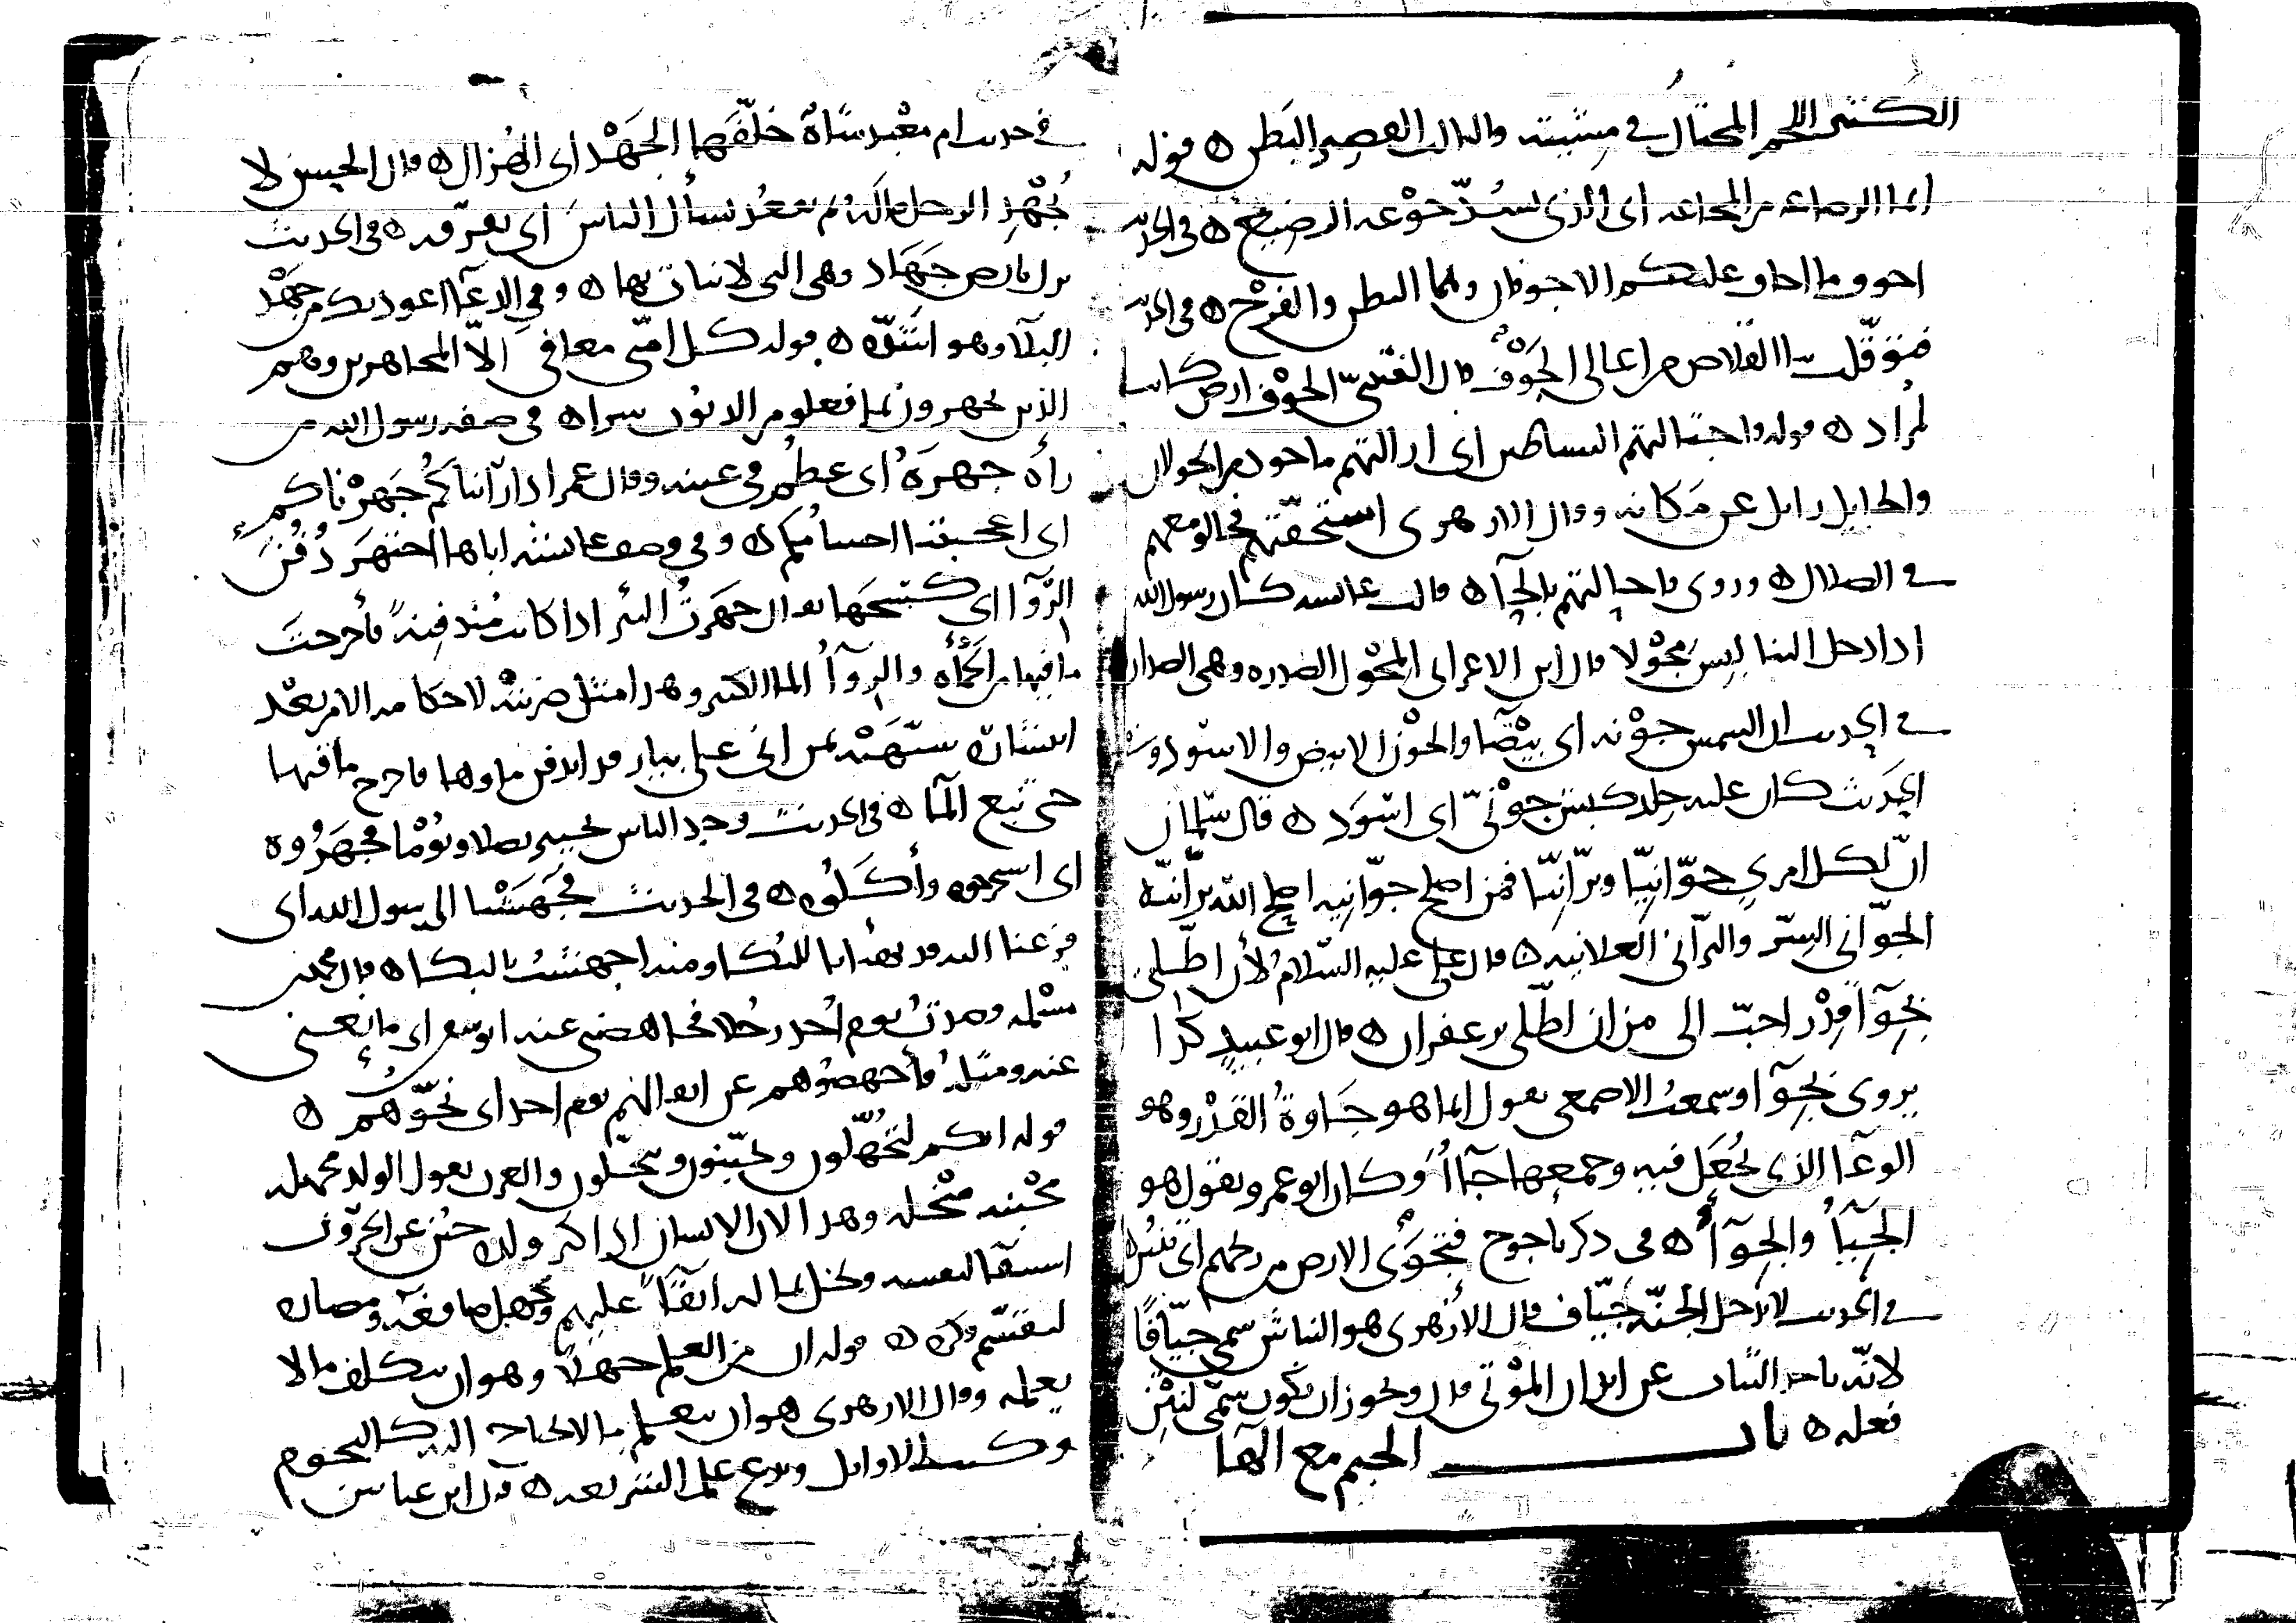 الكثير اللحم المختال في مشيته والثالث القصير البطن ه قوله
انما الرضاعة من المجاعة اى الذى يسد جوعه الرضيع ه في الحديث
اخوف ما اخاف عليكم الاجوفان وهما البطن والفرج ه في الحديث
فتوقلت بنا القلاص من اعالى الجوف قال القتبي الجوف ارض كانت
لمراد ه قوله واجتالتهم الشياطين اى ازالتهم ماخوذ من الجولان
والجايل زايل عن مكانه وقال الازهرى استخفتهم فجالوا معهم
في الضلال ه وروى فاحتالتهم بالحآ ه قالت عايشه كان رسول الله
اذا دخل الينا لبس مجولا قال ابن الاعرابى المجول الصدره وهى الصدار
في الحديث ان الشمس جونه اى بيضا والجون الابيض والاسود وفي
الحديث كان عليه جلد كبش جونى اى اسود ه قال سلمان
ان لكل امرئ جوانيا وبرانيا فمن اصلح جوانيه اصلح الله برانيه
الجوانى السر والبرانى العلانيه ه قال على عليه السلام لأن اطلى
بجوآ قدر احب الى من ان اطلى بزعفران ه قال ابو عبيد كذا
يروى بجوآ وسمعت الاصمعى يقول انما هو جاوة القدر وهو
الوعا الذى تجعل فيه وجمعها جآا وكان ابو عمرو يقول هو
الجيآ والجوآ ه في ذكر ياجوج فتجوى الارض من ريحهم اى تنتن
في الحديث لا يدخل الجنة جياف قال الازهرى هو النباش سمى جيافا
لانه ياخذ الثياب عن ابدان الموتى قال ويجوز ان يكون سمى لنتن
فعله ه باب الجيم مع الها
في حديث ام معبد شاة خلفها الجهد اى الهزال ه قال الحسن لا
يجهد الرجل ماله ثم يقعد يسأل الناس اى يفرقه ه في الحديث
نزل بارض جهاد وهى التى لا نبات بها ه وفي الدعآ اعوذ بك من جهد
البلا وهو اشده ه قوله كل امتى معافى الا المجاهرين وهم
الذين يجهرون بما فعلوه من الذنوب سرا ه في صفه رسول الله من
رآه جهره اى عظم في عينه وقال عمر اذا رايناكم جهرناكم
اى اعجبتنا اجسامكم ه وفي وصف عايشه اباها اجتهر دفن
الروآ اى كسحها يقال جهرت البئر اذا كانت مندفنة فأخرجت
ما فيها من الحمأه والروآ الما الكثير وهذا مثل ضربته لاحكامه الامر بعد
انتشاره شبهته بمن اتى على بيار قد اندفن ماوها فاخرج ما فيها
حتى نبع المآ ه في الحديث وجد الناس بخيبر بصلا وثوما فجهروه
اى استخرجوه وأكلوه ه في الحديث فجهشنا الى رسول الله اى
فزعنا اليه وقد تهيأنا للبكا ومنه اجهشت بالبكا ه قال محمد بن
مسلمه وصدت يوم احد رجلا فجاهضنى عنه ابو سفيان اى مانعنى
عنه ومثله فأجهضوهم عن اثقالهم يوم احد اى نحوهم ه
قوله انكم لتجهلون وتجبنون وتبخلون والعرب تقول الولد مجهله
مجبنه مبخله وهذا لان الانسان اذا كثر ولده جبن عن الحروب
استبقا لنفسه وبخل بماله ابقآ عليهم وجهل ما ينفعه ومضاره
لتقسم فكره ه قوله ان من العلم جهلا وهو ان يتكلف ما لا
يعلمه وقال الازهرى هو ان يتعلم ما لا يحتاج اليه كالنجوم
وكتب الاوايل ويدع علم الشريعه ه قال ابن عباس